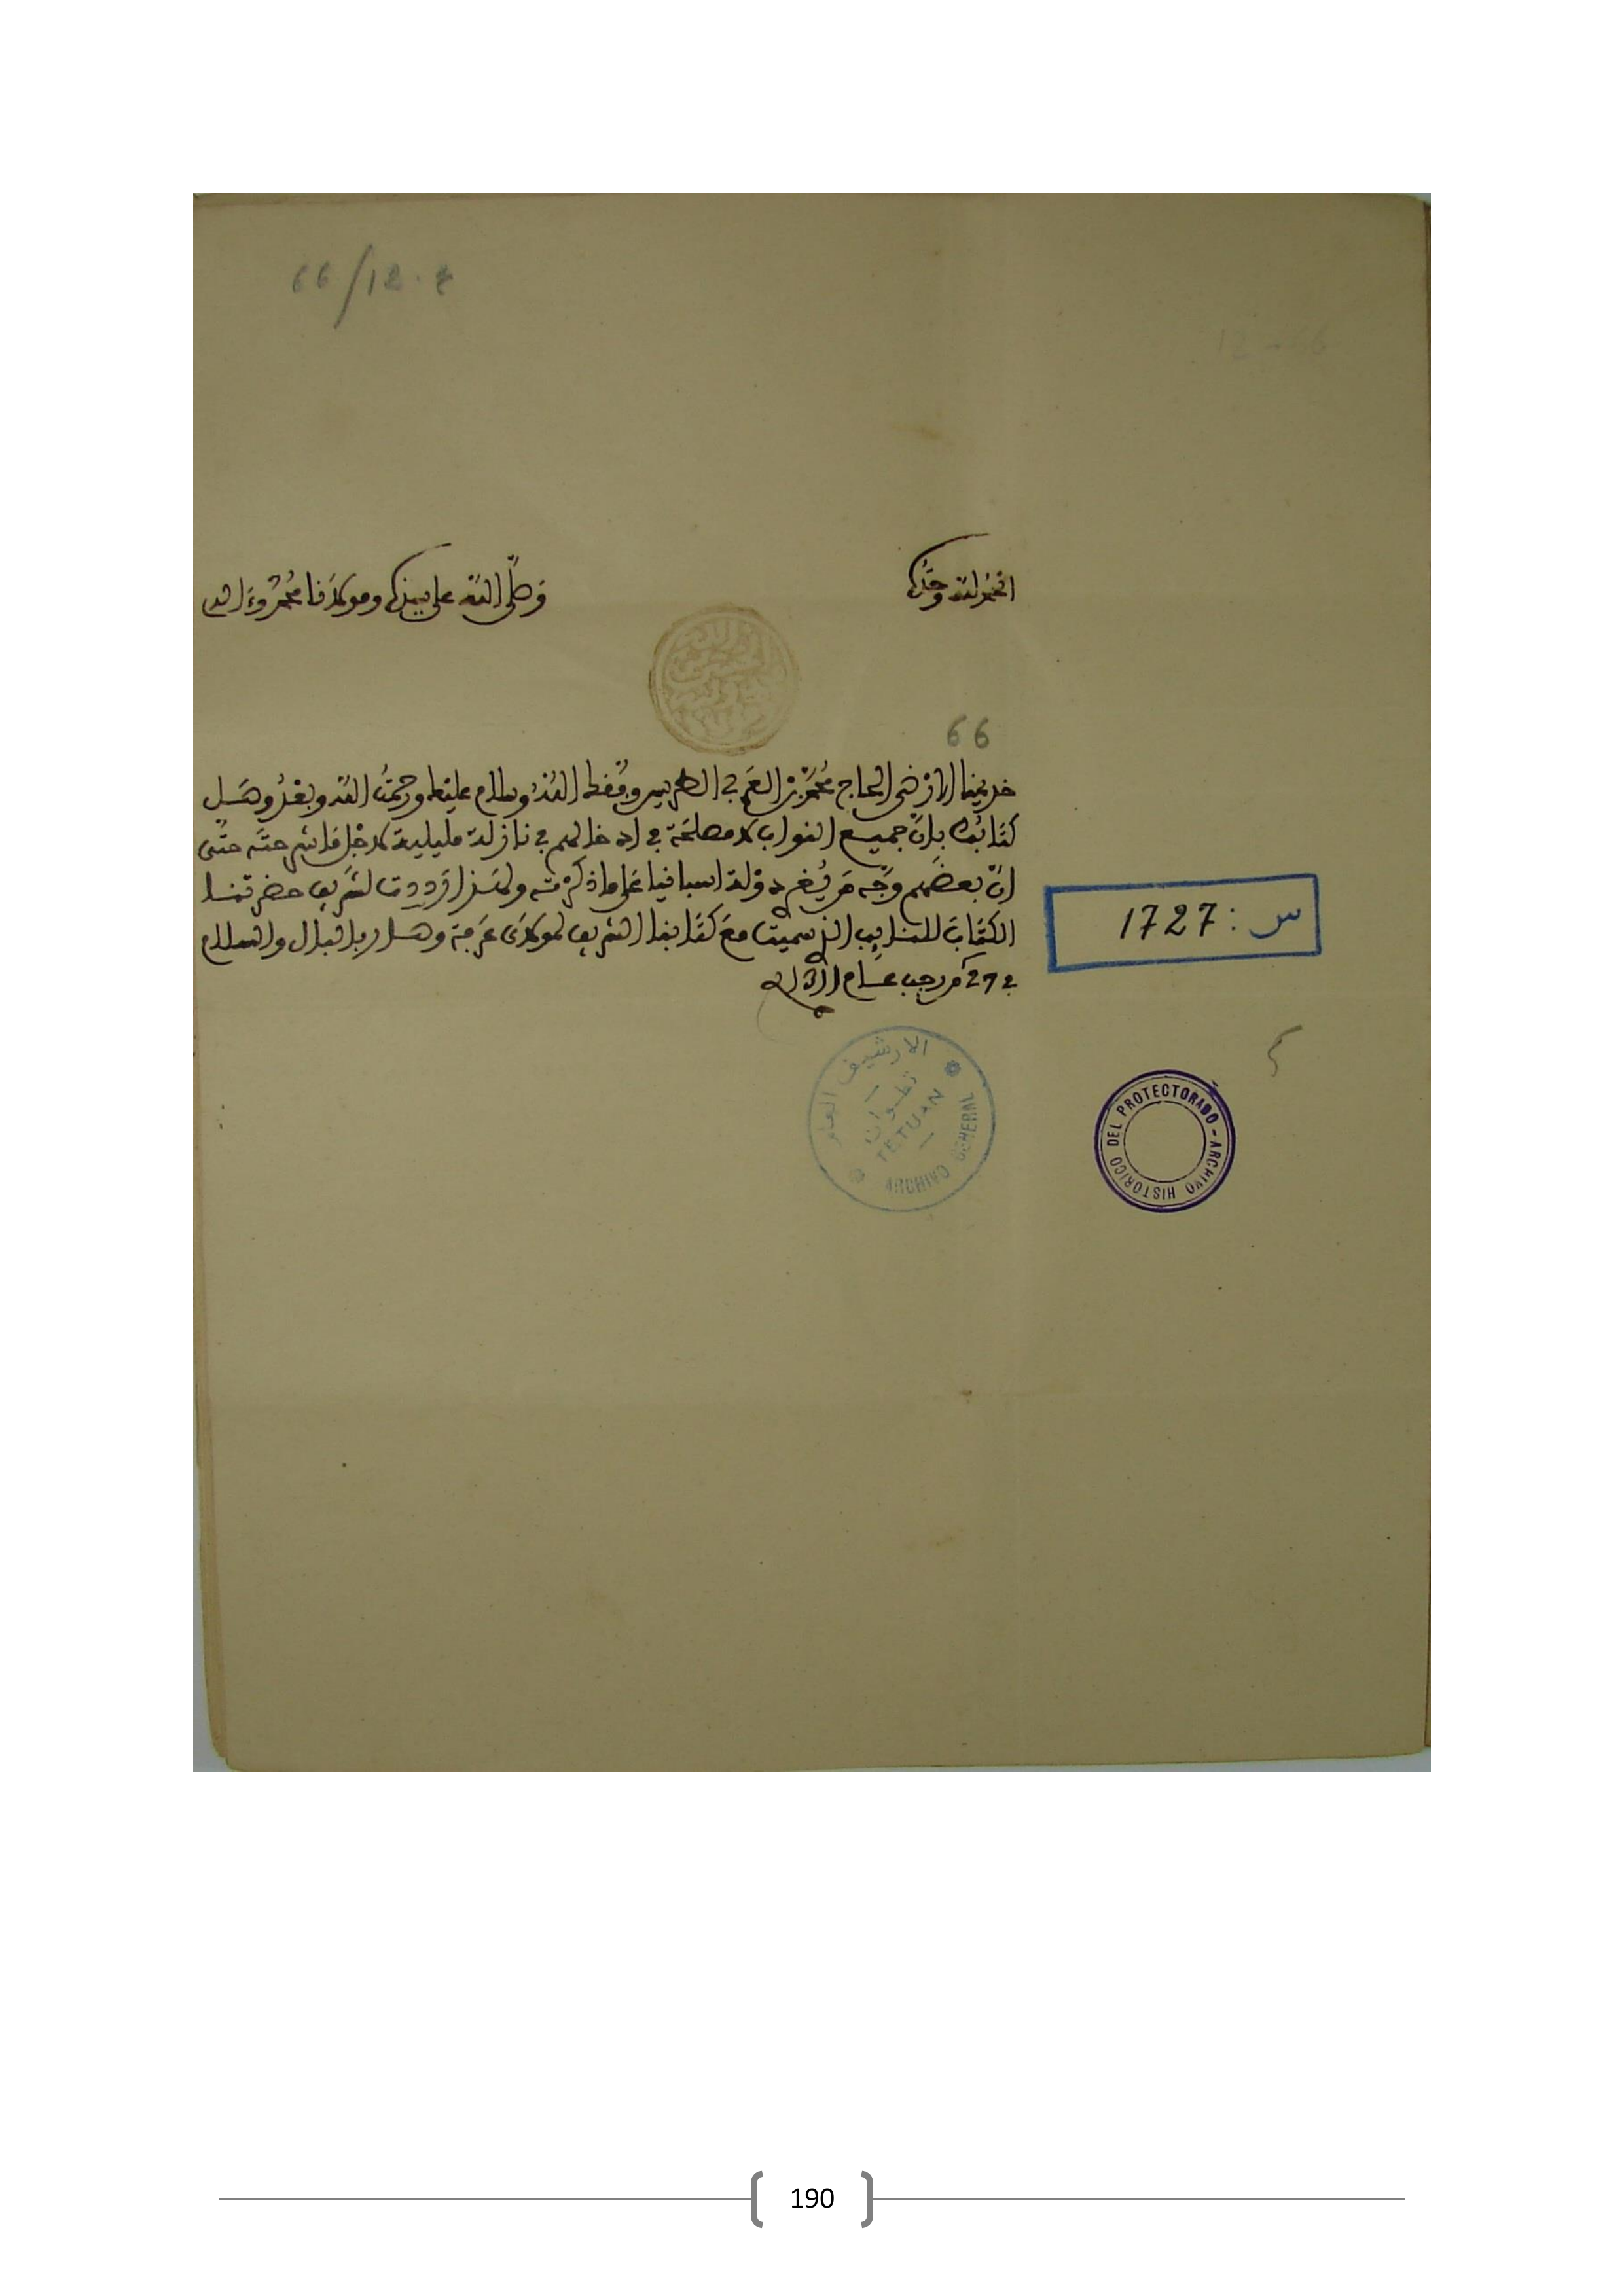 66/12.
الحمد لله وحده
وصلى الله على سيدنا ومولانا محمد وءاله
66
خديمنا الارضى الحاج محمد بن العربي الطريس وفقك الله وسلام عليك ورحمت الله وبعد وصل
كتابك بان جميع النواب لا مصلحة في ادخالهم في نازلة مليلية لاجل ما شرحته حتى
ان بعضهم وجه من يغر دولة اسبانيا على ما ذكرته ولهذا رددت لشريف حضرتنا
الكتاب للنايب الذي سميت مع كتابنا الشريف لمولاي عرفة وصار بالبال والسلام
في 27 من رجب عام
س: 1727
الارشيف العام
تطوان
TETUAN
ARCHIVO GENERAL
ARCHIVO HISTORICO DEL PROTECTORADO
190